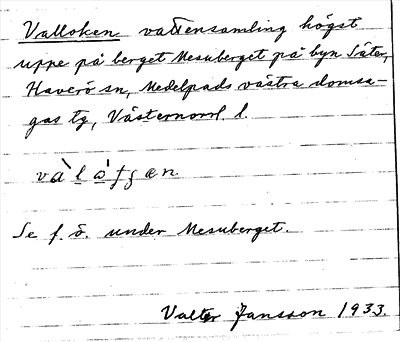 Valloken vattensamling högst
uppe på berget Mesuberget på byn Säter,
Haverö sn, Medelpads västra domsa-
gas tg, Västernorrl. l.
Se f. ö. under Mesuberget.
Valter Jansson 1933.